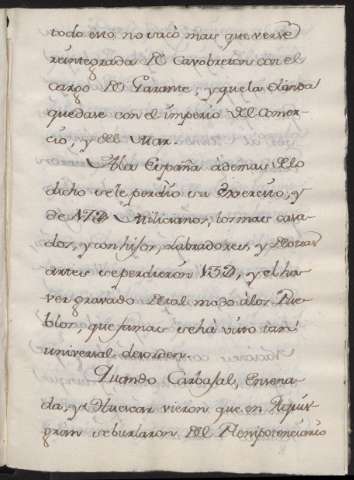 todo esto, no sacò mas que verse
reintegrada de Cavobreton con el
cargo de Garante; y que la Olanda
quedase con el imperio del Comer-
cio, y del Mar.
A la España ademas de lo
dicho se le perdio su Exercito, y
de 17D Milicianos, los mas casa-
dos, y con hijos, Labradores, y de otras
artes se perdieron 15D, y el ha-
ver gravado de tal modo à los Pue-
blos, que jamas se hà visto tan
universal desorden.
Quando Carbajal, Ensena-
da, y Huescar vieron que en Aquis-
gran se burlaron del Plenipotenciario